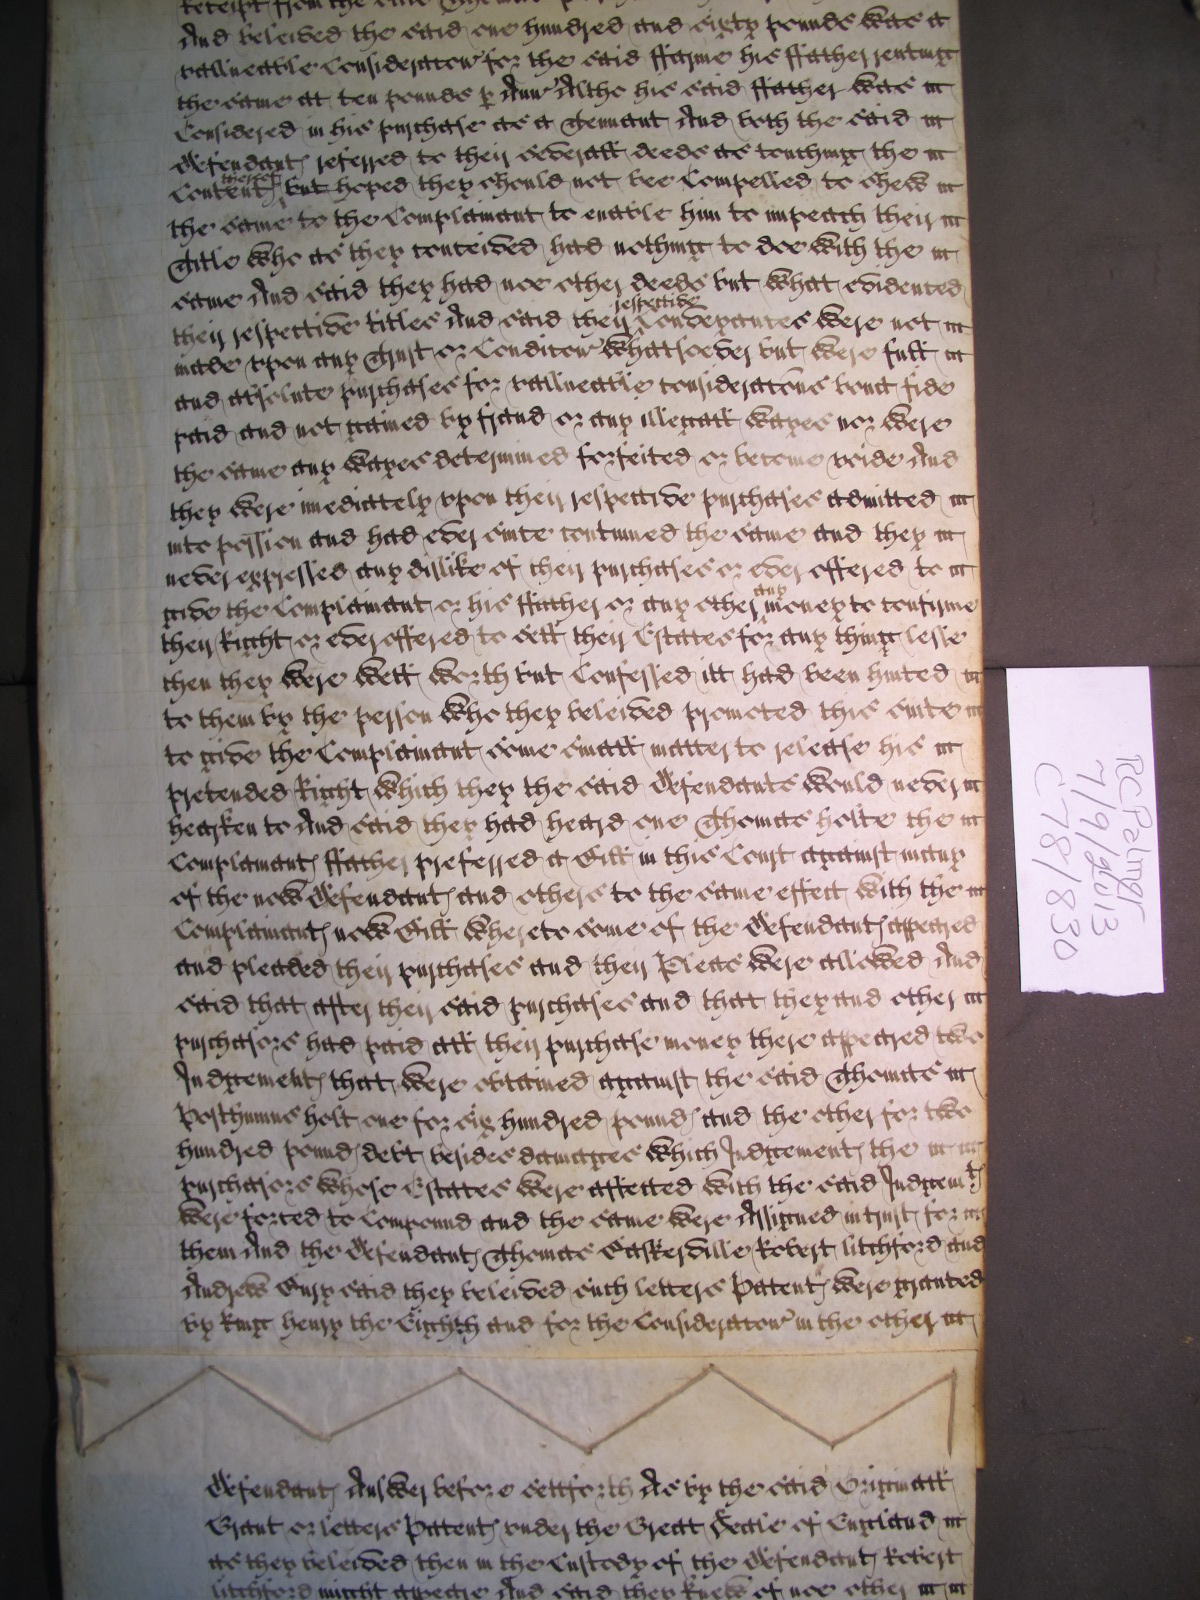 receipt from the said
And beleived the said one hundred and sixty pounds was a
valueable Consideracon for the said ffarme his ffather renting
the same at ten pounds p Ann Altho his said ffather was
Considered in his purchase as a Tennant And both the said
Defendants referred to their severall deeds as touching the
Contents thereof but hoped they should not bee Compelled to shew
the same to the Complainant to enable him to impeach their
Title who as they conceived had nothing to doe with the
same And said they had noe other deeds but what evidenced
their respective titles And said their respective Conveyances were not
made upon any Trust or Condicon whatsoever but were full
and absolute purchases for valueable consideracons bona fide
paid and not gained by fraud or any illegall wayes nor were
the same any wayes determined forfeited or become voide And
they were imediately upon their respective purchases admitted
into possion and had ever since continued the same and they
never expressed any dislike of their purchases or ever offered to
give the Complainant or his ffather or any other any money to confirme
their Right or ever offered to sell their Estates for any thing lesse
then they were well worth but Confessed itt had been hinted
to them by the person who they beleived promoted this suite
to give the Complainant some small matter to release his
pretended Right which they the said Defendants would never
hearken to And said they had heard one Thomas holte the
Complainants ffather preferred a Bill in this Court against many
of the now Defendants and others to the same effect with the
Complainants now Bill whereto some of the Defendants appeared
and pleaded their purchases and their Pleas were allowed And
said that after their said purchases and that they and other
purchasors had paid all their purchase money there appeared two
Judgements that were obtained against the said Thomas
Posthumus holt one for six hundred pounds and the other for two
hundred pounds debt besides damages which Judgements the
purchasors whose Estates were affected with the said Judgemts
were forced to Compound and the same were Assigned in trust for
them And the Defendants Thomas Baskerville Robert litchford and
Andrew Bury said they beleived such letters Patents were granted
by king henry the Eighth and for the Consideracon in the other
Defendants Answer before settforth As by the said Originall
Grant or letters Patents under the Great Seale of England
as they beleived then in the Custody of the Defendants Robert
litchford might appeare And said they knew of noe other
TCPalmer
7/9/2013
C78/830